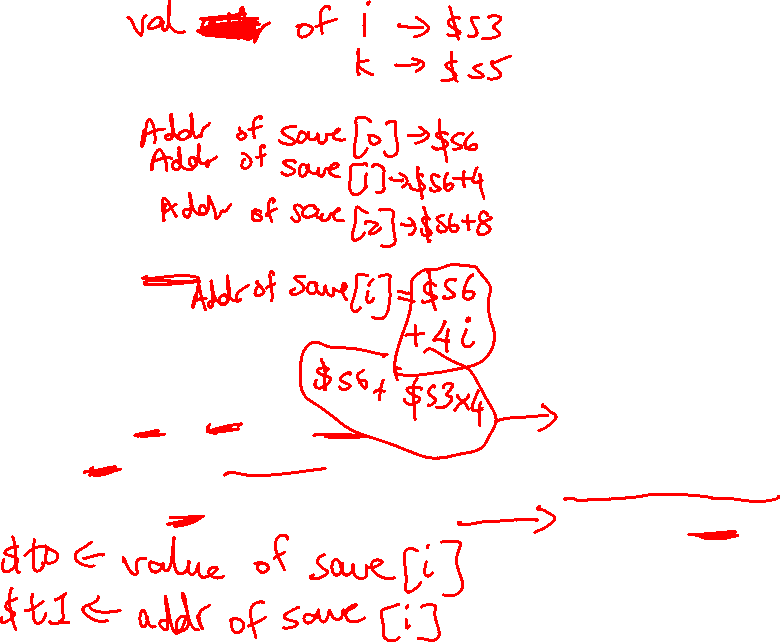 val of i → $s3
k → $s5
Addr of save[0]→$s6
Addr of save[1]→$s6+4
Addr of save[2]→$s6+8
Addr of save[i]=$s6
+4i
$s6+ $s3×4 →
→
$t0 ← value of save[i]
$t1 ← addr of save[i]